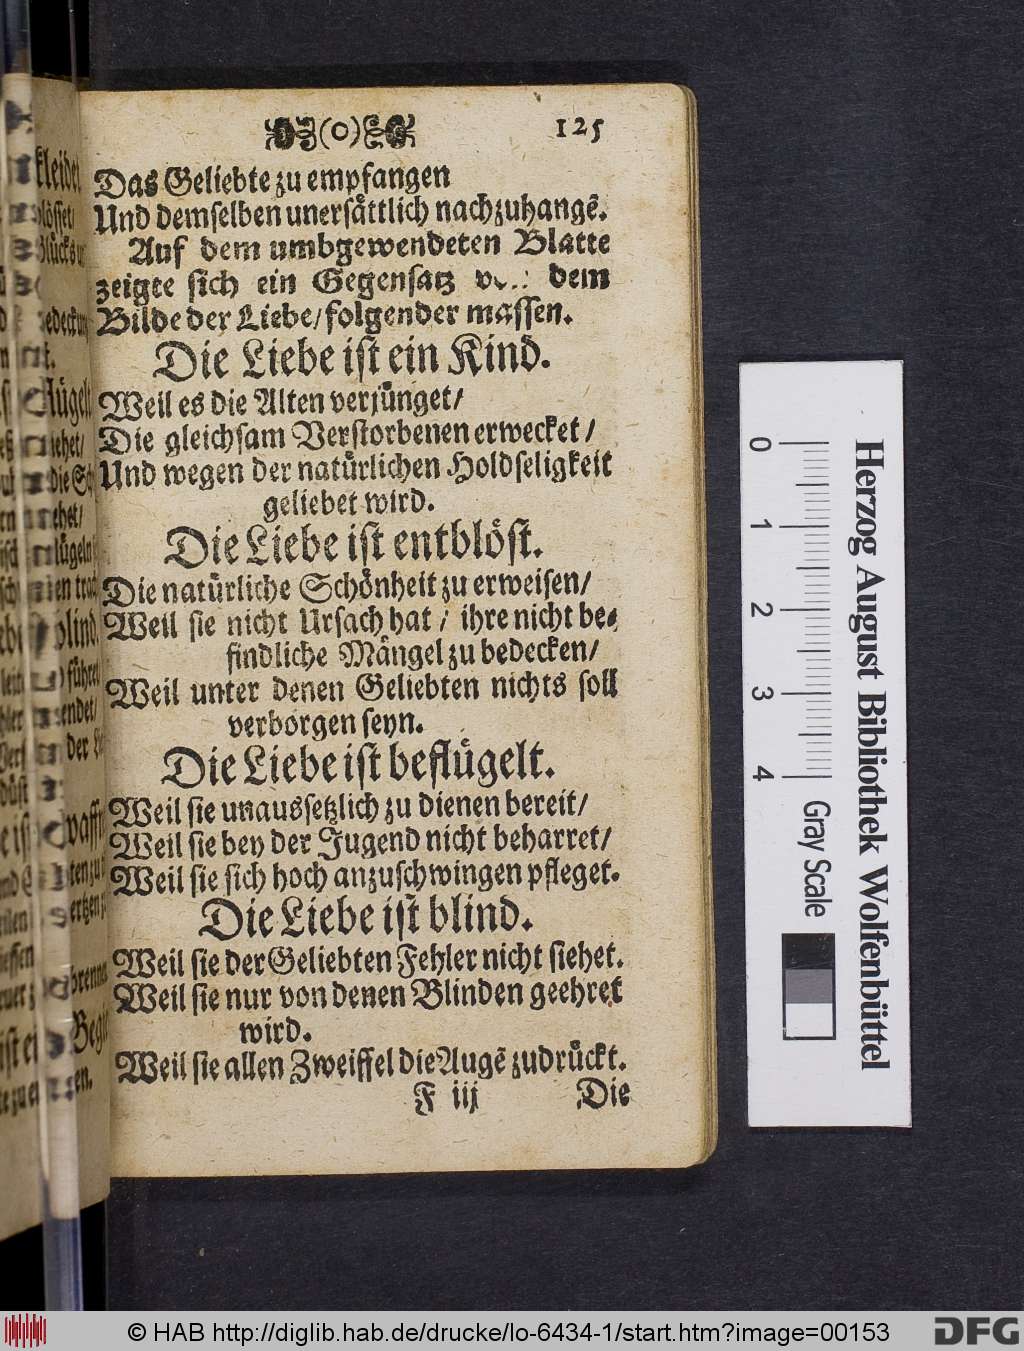 (o) 125
Das Geliebte zu empfangen
Und demselben unersättlich nachzuhangẽ.
Auf dem umbgewendeten Blatte
zeigte sich ein Gegensatz dem
Bilde der Liebe/ folgender massen.
Die Liebe ist ein Kind.
Weil es die Alten verjünget/
Die gleichsam Verstorbenen erwecket/
Und wegen der natürlichen Holdseligkeit
geliebet wird.
Die Liebe ist entblöst.
Die natürliche Schönheit zu erweisen/
Weil sie nicht Ursach hat/ ihre nicht be-
findliche Mängel zu bedecken/
Weil unter denen Geliebten nichts soll
verborgen seyn.
Die Liebe ist beflügelt.
Weil sie unaussetzlich zu dienen bereit/
Weil sie bey der Jugend nicht beharret/
Weil sie sich hoch anzuschwingen pfleget.
Die Liebe ist blind.
Weil sie der Geliebten Fehler nicht siehet.
Weil sie nur von denen Blinden geehret
wird.
Weil sie allen Zweiffel die Augẽ zudrückt.
F iij Die
0 1 2 3 4
Gray Scale
Herzog August Bibliothek Wolfenbüttel
© HAB http://diglib.hab.de/drucke/lo-6434-1/start.htm?image=00153
DFG